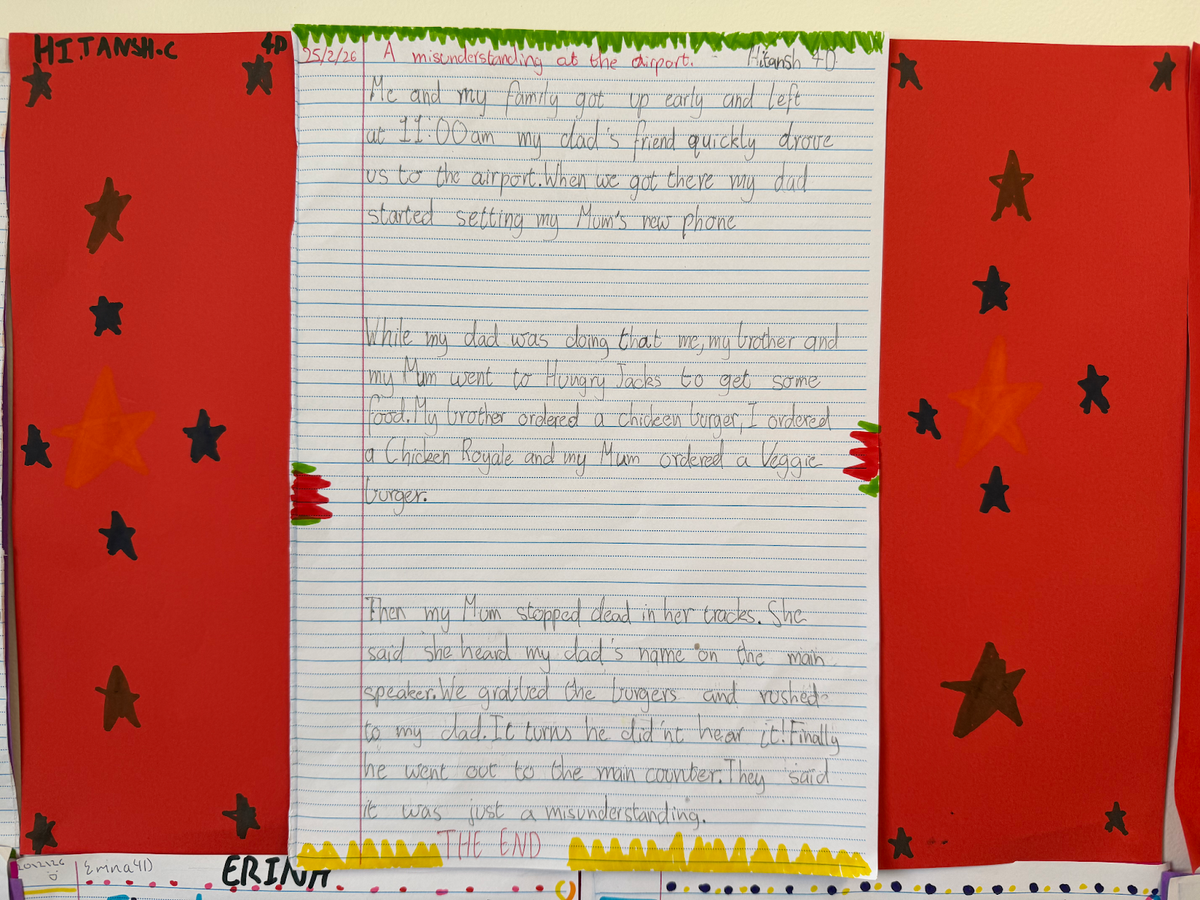 HITANSH.C 4D
25/2/26 A misunderstanding at the airport. - Hitansh 4D
Me and my family got up early and left
at 11:00am my dad's friend quickly drove
us to the airport.When we got there my dad
started setting my Mum's new phone
While my dad was doing that me, my brother and
my Mum went to Hungry Jacks to get some
food.My brother ordered a chicken burger, I ordered
a Chicken Royale and my Mum ordered a Veggie
burger.
Then my Mum stopped dead in her tracks. She
said she heard my dad's name on the main
speaker.We grabbed the burgers and rushed
to my dad.It turns he did'nt hear it!Finally
he went out to the main counter.They said
it was just a misunderstanding.
THE END
ERINA